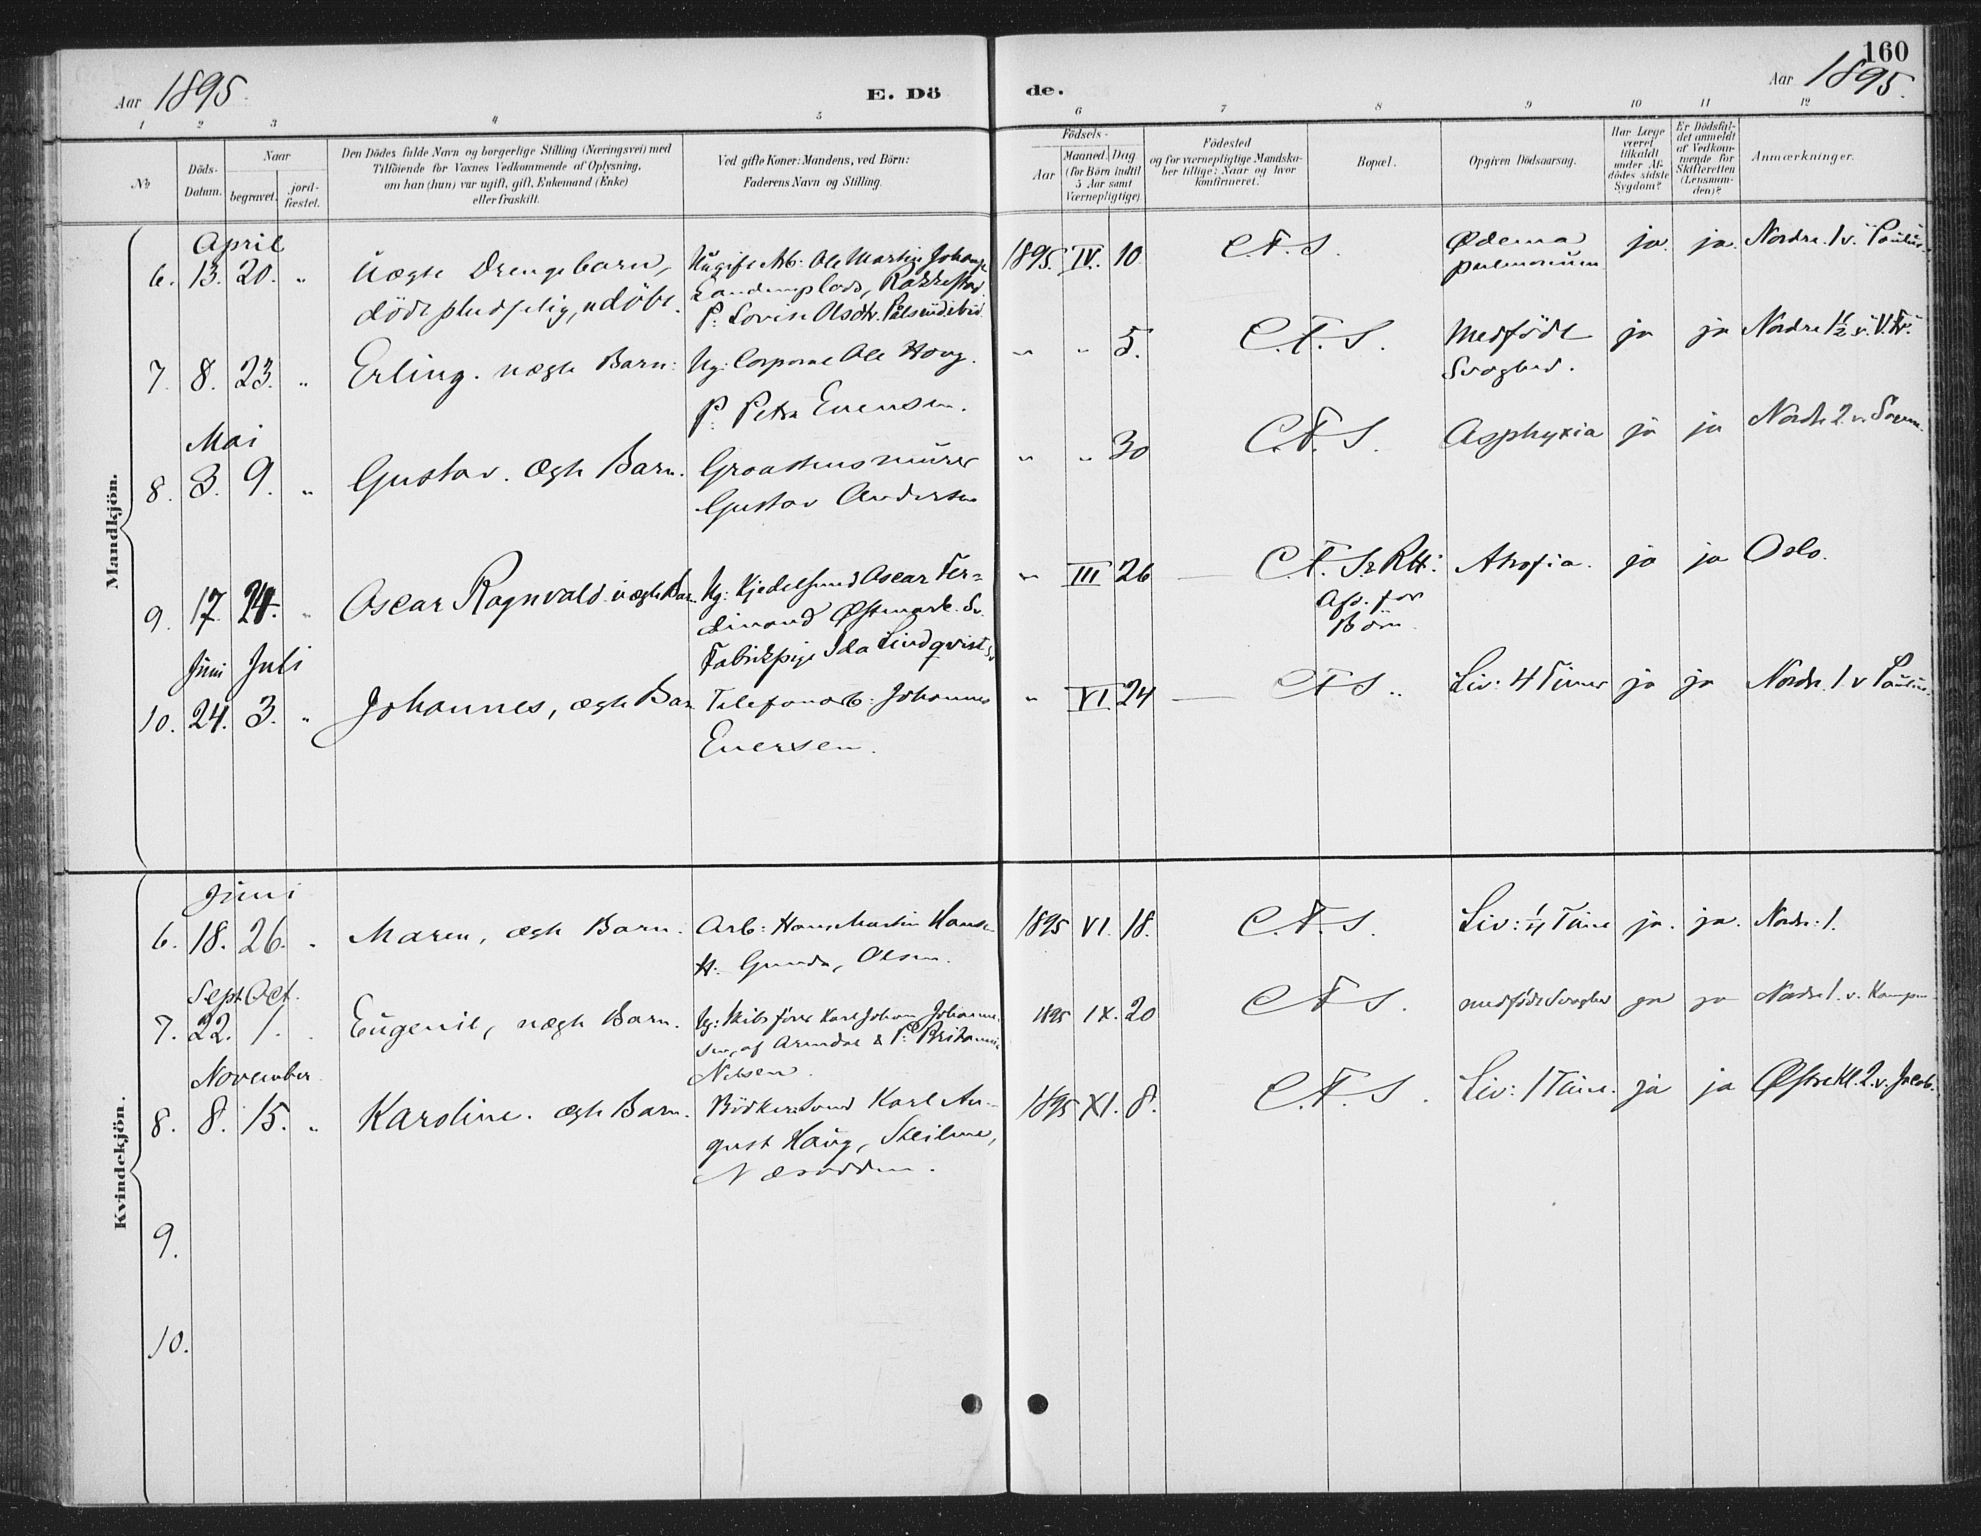 160
Aar 1895.
E. Dö
de.
Aar 1895.
1 2 3 4 5 6 7 8 9 10 11 12
No
Döds-
Datum.
Naar
begravet.
jord-
fæstet.
Den Dödes fulde Navn og borgerlige Stilling (Næringsvei) med
Tilföiende for Voxnes Vedkommende af Oplysning,
om han (hun) var ugift, gift, Enkemand (Enke)
eller fraskilt.
Ved gifte Koner: Mandens, ved Börn:
Faderens Navn og Stilling.
Födsels-
Aar
Maaned. Dag
(for Börn indtil
5 Aar samt
Værnepligtige)
Födested
og for værnepligtige Mandska-
ber tillige: Naar og hvor
konfirmeret.
Bopæl.
Opgiven Dödsaarsag.
Har Læge
været
tilkaldt
under Af-
dödes sidste
Sygdom?
Er Dödsfal-
det anmeldt
af Vedkom-
mende for
Skifteretten
(Lensman-
den)?
Anmærkninger.
Mandkjön.
April
6. 13. 20. " Uægte Drengebarn,
döde pludselig, udöbt.
Ugift Arb. Ole Martin Johans.
Rakkestad.
P. Lovise Olsdtr.
1895. IV. 10 C.F.S. Ødema
pulmonum
ja ja Nordre 1 v. Paulus.
7. 8. 23. " Erling. uægte Barn. Ug: Corporal Ole Houg.
P. Petra Evensen.
" " 5. C.F.S. Medfödt
Svaghed.
ja ja Nordre 1½
Mai
8. 3. 9. " Gustav. Ægte Barn. Graastensmurer
Gustav Andersen
" " 30 C.F.S. Asphyxia ja ja Nordre 2 v.
9. 17. 24. " Oscar Ragnvald uægte Barn. Ug: Kjedelsmed Oscar Fer-
dinand Østmark. Sv.
Fabrikpige Ida Lindqvist
" III 26 C.F.S. Rtt:
Afd. for
Börn
Atrofia. ja ja Oslo.
Juni Juli
10. 24. 3. " Johannes, ægte Barn Telefonarb: Johannes
Evensen.
" VI 24 C.F.S. Liv: 4 Timer ja ja Nordre 1 v Paulus.
Kvindekjön.
Juni
6. 18. 26. " Maren, ægte Barn. Arb: Hans Martin Hansen
H. Gunda, Olsen.
1895 VI. 18. C.F.S. Liv: ¼ Time ja. ja. Nordre: 1.
Sept. Oct.
7. 22. 1. Eugenie, uægte Barn. Ug: Skibsförer Karl Johan Johanne-
sen, af Arendal & P. Britannia
Nilsen.
1895 IX. 20 C.F.S. medfödt Svaghed ja ja Nordre 1. v. Kampen
November
8. 8. 15. " Karoline. ægte Barn. Bödkersvend Karl Au-
gust Haug, Steilene,
Næsodden.
1895 XI. 8. C.F.S. Liv: 1 Time. ja ja Østre Kl. 2. v. Jacob.
9.
10.